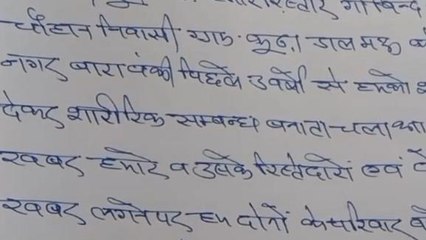 गोविन्द
चौहान निवासी ग्राम. कूढ़ा डाल मऊ
नगर बाराबंकी पिछले 3 वर्षो से हमको
देकर शारीरिक सम्बन्ध बनाता चला आ
खबर हमारे व उसके रिश्तेदारों एवं
खबर लगनेपर हम दोनों के परिवार